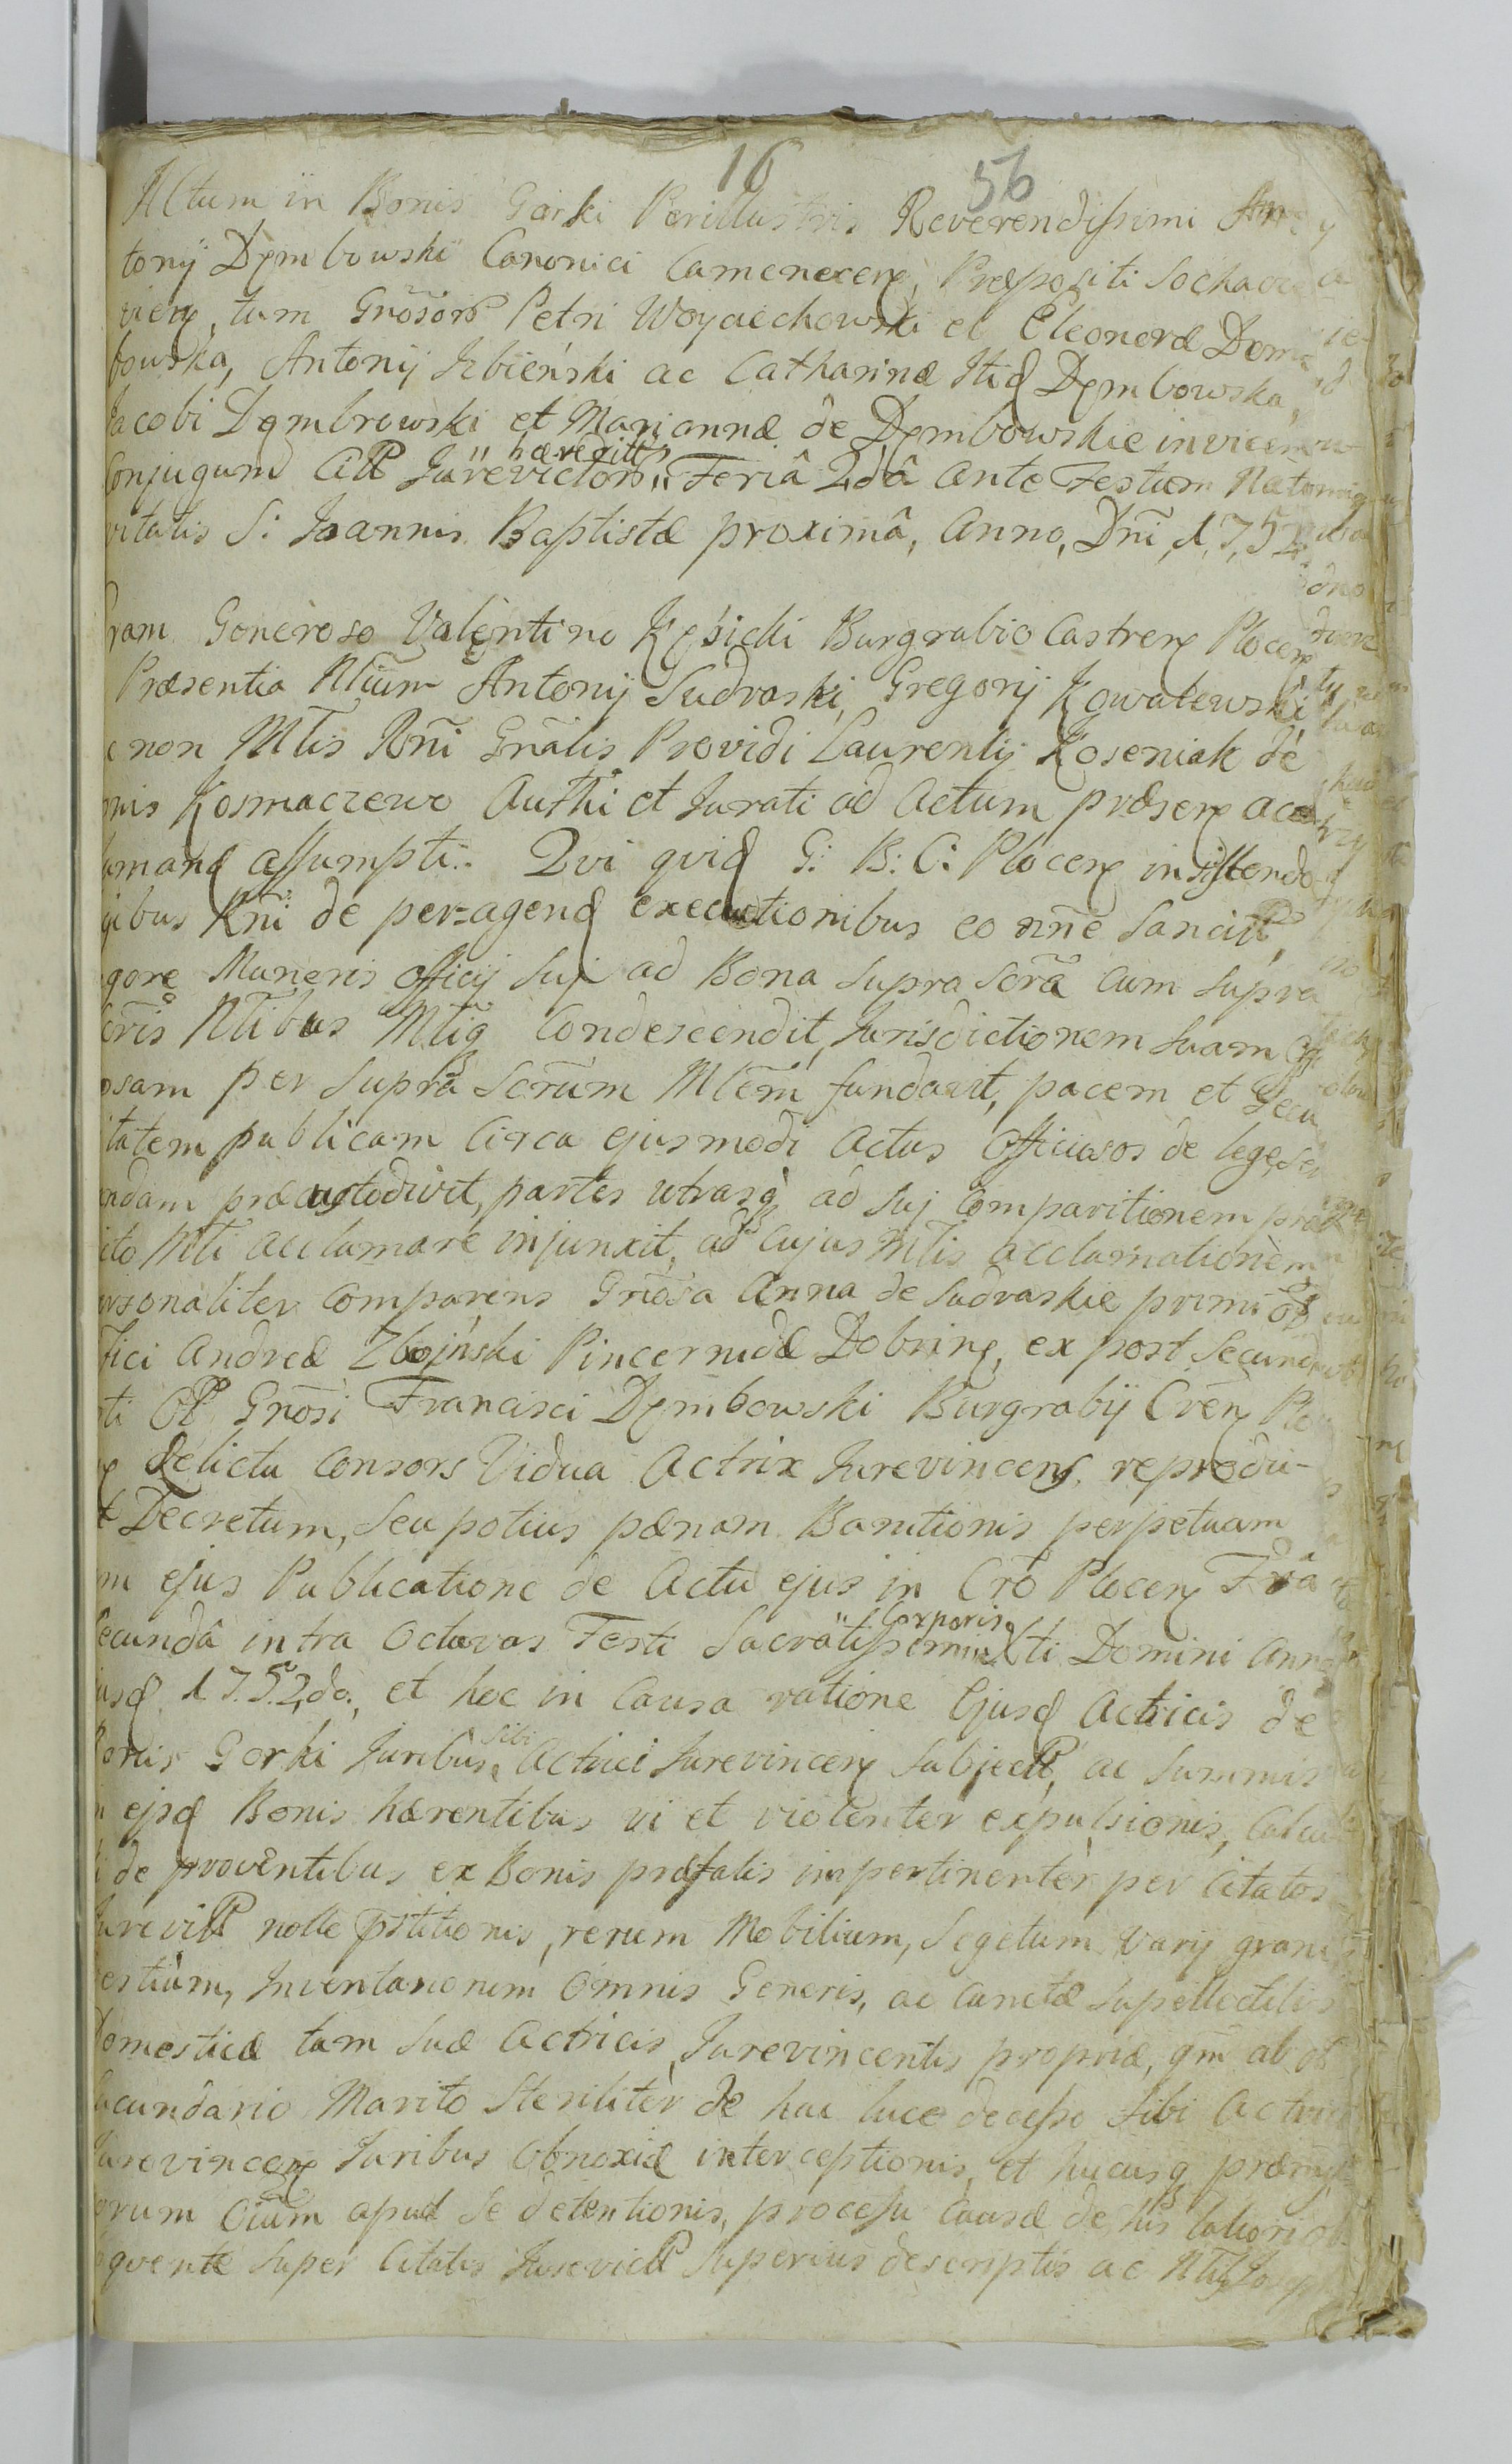 16 56
Actum in Bonis Gorki Perillustris Reverendissimi An
tonij Dembowski Canonici Camenecen, Præpositi Sochacze
vien, tum Gnosor Petri Woyciechowski et Eleonoræ Dem
bowska, Antonij Izbieński ac Catharinæ Itid Dembowska,
Jacobi Dembrowski et Mariannæ de Dembowskie invicem
Conjugum Citt Jurevictor, hæreditt, Feriâ 2dâ ante Festum Nati
vitatis S: Joannis Baptistæ proximâ, Anno, Dni, 1752
ram Goneroso Valentino Kęsicki Burgrabio Castren Plocen
Præsentia Nlium Antonij Sudraski, Gregorij Kowalewski
c non Mtis Rni Gnalis Providi Laurentij Koseniak de
nis Kosmaczewo Autthi et Jurati ad Actum præsen ac
amand assumpti. Qvi qvid G: B: C: Plocen insistendo
gibus Rni de per=agend executionibus eo nne Sancitt,
gore Muneris officij sui ad Bona supra scra cum supra
cris Ntibus Mtiq Condescendit, Jurisdictionem suam
osam per supra scrum Mtem fundavit, pacem et Secu
itatem publicam Circa ejusmodi Actus Officiosos de lege, ser
andam præcustodivit, partes utrasq ad sui Comparitionem præ
cto Mti acclamare injunxit, ad Cujus Mtis acclamationem
ersonaliter Comparens Gnosa Anna de Sudraskie primi ol
fici Andreæ Zbojński Pincernidæ Dobrin, ex post Secund
ti Ol Gnosi Francisci Dembowski Burgrabij Cren Plo
Relicta Consors Vidua Actrix Jurevincens reprodu-
t Decretum, Seu potius pænam Bannitionis perpetuam
m ejus Publicatione de Actu ejus in Cro Plocen Frâ
Secundâ intra Octavas Festi Sacratissimi Corporis Xti Domini Anno
usd 1752do, et hoc in Causa ratione Ejusd Actricis de
Bonis Gorki Juribus, sibi Actrici Jurevincen subjectt, ac summis
n ejsd Bonis hærentibus vi et violenter expulsionis, Calcul
i de proventibus ex Bonis præfatis impertinenter per Citatos
Jurevitt nolle pstitionis, rerum Mobilium, Segetum varij grani
estium, Inventariorum Omnis Generis, ac Cunctæ Supellectilis
Domesticæ tam suæ Actricis, Jurevincentis propriæ, qm ab ol
Secundario Marito Steriliter de hac luce decesso sibi Actrici
Jurevincen Juribus Obnoxiæ interceptionis, et hucusq præmis
orum Oium apud se detentionis, processu Causæ de his latiori
qvente super Citatis Jurevictt superius descriptis ac Ntli Joseph